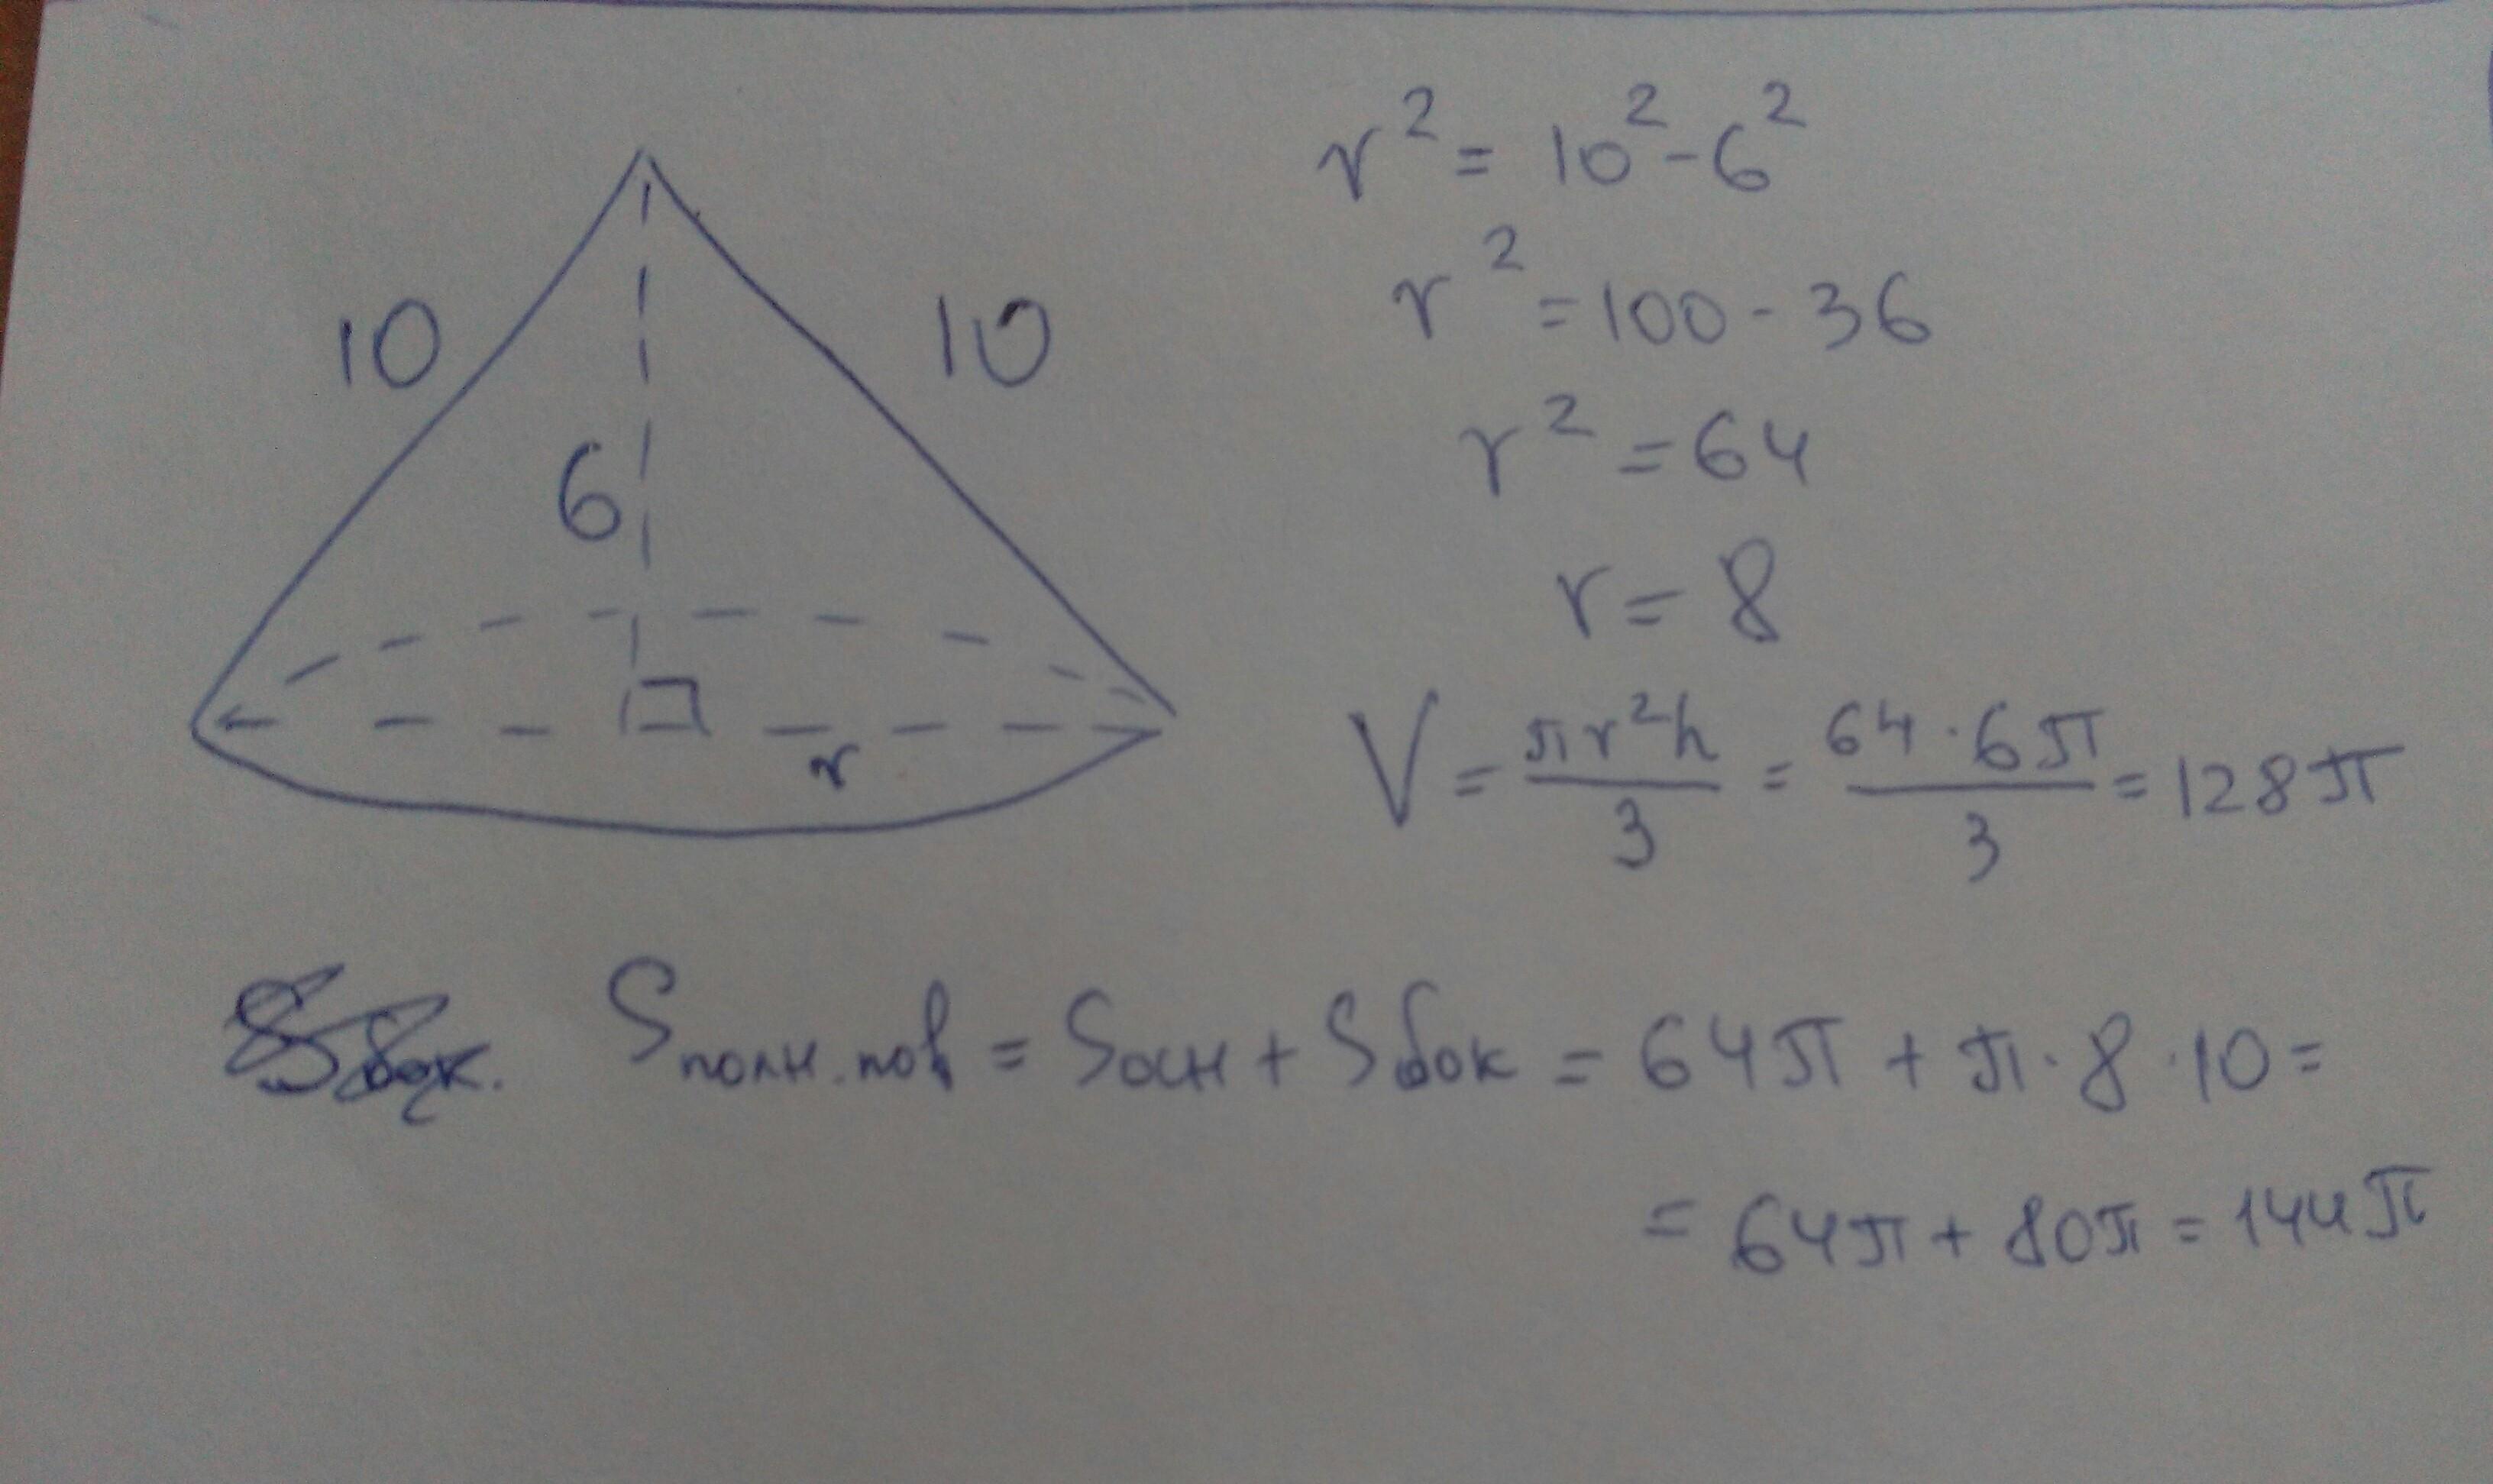 10
10
6
r
r² = 10² - 6²
r² = 100 - 36
r² = 64
r = 8
V = πr²h/3 = 64 · 6π/3 = 128π
Sполн.пов = Sосн + Sбок = 64π + π · 8 · 10 =
= 64π + 80π = 144π